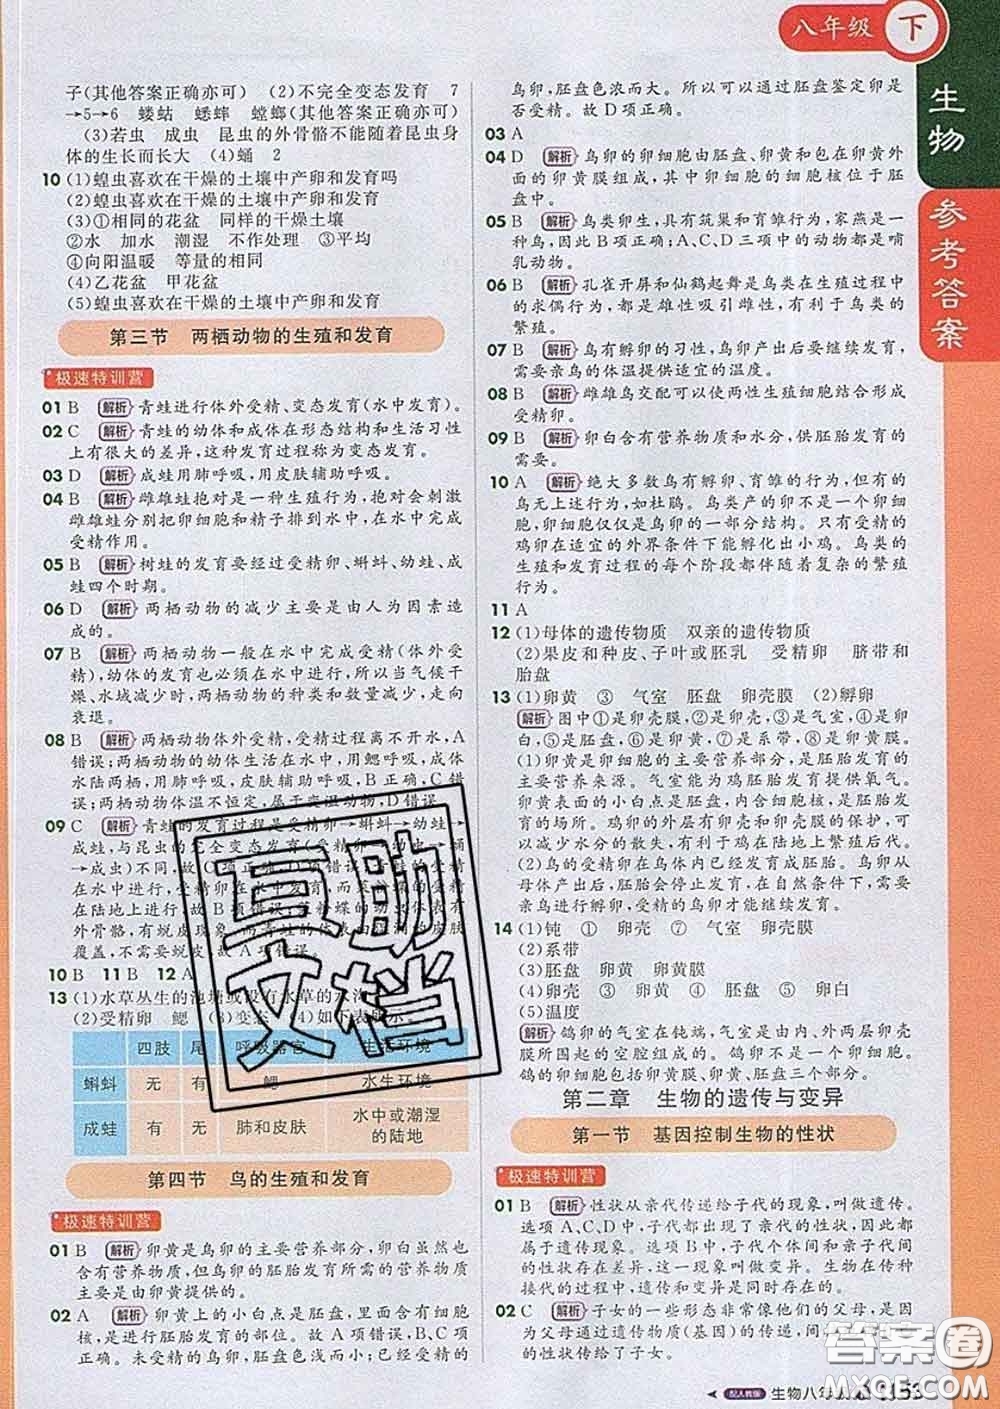 八年级 下
生物 参考答案
子(其他答案正确亦可) (2)不完全变态发育 7
→5→6 蝼蛄 蟋蟀 螳螂(其他答案正确亦可)
(3)若虫 成虫 昆虫的外骨骼不能随着昆虫身
体的生长而长大 (4)蛹 2
10 (1)蝗虫喜欢在干燥的土壤中产卵和发育吗
(2)蝗虫喜欢在干燥的土壤中产卵和发育
(3)①相同的花盆 同样的干燥土壤
②水 加水 潮湿 不作处理 ③平均
④向阳温暖 等量的相同
(4)乙花盆 甲花盆
(5)蝗虫喜欢在干燥的土壤中产卵和发育
第三节 两栖动物的生殖和发育
极速特训营
01 B 解析 青蛙进行体外受精、变态发育(水中发育)。
02 C 解析 青蛙的幼体和成体在形态结构和生活习性
上有很大的差异,这种发育过程称为变态发育。
03 D 解析 成蛙用肺呼吸,用皮肤辅助呼吸。
04 B 解析 雌雄蛙抱对是一种生殖行为,抱对会刺激
雌雄蛙分别把卵细胞和精子排到水中,在水中完成
受精作用。
05 B 解析 树蛙的发育要经过受精卵、蝌蚪、幼蛙、成
蛙四个时期。
06 D 解析 两栖动物的减少主要是由人为因素造
成的。
07 B 解析 两栖动物一般在水中完成受精(体外受
精),幼体的发育也必须在水中进行,所以当气候干
燥、水域减少时,两栖动物的种类和数量减少,走向
衰退。
08 B 解析 两栖动物体外受精,受精过程离不开水,A
错误;两栖动物的幼体生活在水中,用鳃呼吸,成体
水陆两栖,用肺呼吸,皮肤辅助呼吸,B正确,C错
误;两栖动物体温不恒定,属于变温动物,D错误
09 C 解析 青蛙的发育过程是受精卵→蝌蚪→幼蛙→
成蛙,与昆虫的完全变态发育(受精卵→幼虫→蛹
→成虫)不同,故C项正确
10 B 11 B 12 A
13 (1)水草丛生的池塘或没有水草的水沟
(2)受精卵 鳃 (3)变态 (4)如下表所示。
四肢 尾 呼吸器官 生活环境
蝌蚪 无 有 鳃 水生环境
成蛙 有 无 肺和皮肤 水中或潮湿的陆地
第四节 鸟的生殖和发育
极速特训营
01 B 解析 卵黄是鸟卵的主要营养部分,卵白虽然也
含有营养物质,但鸟卵的胚胎发育所需的营养物质
主要是由卵黄提供的。
02 A 解析 卵黄上的小白点是胚盘,里面含有细胞
核,是进行胚胎发育的部位。故A项错误,B、C项正
确。未受精的鸟卵,胚盘色浅而小;已经受精的
鸟卵,胚盘色浓而大。所以可通过胚盘鉴定卵是
否受精。故D项正确。
03 A
04 D 解析 鸟卵的卵细胞由胚盘、卵黄和包在卵黄外
面的卵黄膜组成,其中卵细胞的细胞核位于胚
盘中。
05 B 解析 鸟类卵生,具有筑巢和育雏行为,家燕是一
种鸟,因此B项正确;A、C、D三项中的动物都是哺
乳动物。
06 B 解析 孔雀开屏和仙鹤起舞是鸟类在生殖过程中
的求偶行为,都是雄性吸引雌性,有利于鸟类的
繁殖。
07 B 解析 鸟有孵卵的习性,鸟卵产出后要继续发育,
需要亲鸟的体温提供适宜的温度。
08 B 解析 雌雄鸟交配可以使两性生殖细胞结合形成
受精卵。
09 B 解析 卵白含有营养物质和水分,供胚胎发育的
需要。
10 A 解析 绝大多数鸟有孵卵、育雏的行为,但有的
鸟无上述行为,如杜鹃。鸟类产的卵不是一个卵细
胞,卵细胞仅仅是鸟卵的一部分结构。只有受精的
鸡卵在适宜的外界条件下能孵化出小鸡。鸟类的
生殖和发育过程的每个阶段都伴随着复杂的繁殖
行为。
11 A
12 (1)母体的遗传物质 双亲的遗传物质
(2)果皮和种皮、子叶或胚乳 受精卵 脐带和
胎盘
13 (1)卵黄 ③ 气室 胚盘 卵壳膜 (2)孵卵
解析 图中①是卵壳膜,②是卵壳,③是气室,④是卵
白,⑤是胚盘,⑥是卵黄,⑦是系带,⑧是卵黄膜。
(1)卵黄是卵细胞的主要营养部分,是胚胎发育的
主要营养来源。气室能为鸡胚胎发育提供氧气。
卵黄表面的小白点是胚盘,内含细胞核,是胚胎发
育的场所。鸡卵的外层有卵壳和卵壳膜的保护,可
以减少水分的散失,有利于鸡在陆地上繁殖后代。
(2)鸟的受精卵在鸟体内已经发育成胚胎。鸟卵从
母体产出后,胚胎会停止发育,在自然条件下,需要
亲鸟进行孵卵,受精的鸟卵才能继续发育。
14 (1)钝 ① 卵壳 ⑦ 气室 卵壳膜
(2)系带
(3)胚盘 卵黄 卵黄膜
(4)卵壳 ③ 卵黄 ④ 胚盘 ⑤ 卵白
(5)温度
解析 鸽卵的气室在钝端,气室是由内、外两层卵壳
膜所围起的空腔组成的。鸽卵不是一个细胞,鸽卵
的卵黄、卵黄膜、胚盘三部分合起来是一个细胞。鸽
卵的结构中胚盘将来发育成雏鸽
第二章 生物的遗传与变异
第一节 基因控制生物的性状
极速特训营
01 B 解析 性状从亲代传递给子代的现象,叫做遗传。
选项A、C、D中,子代都出现了亲代的性状,因此都
属于遗传现象。而B项中,子代个体间和亲子代间
的性状存在差异,这一现象叫做变异。生物在传种
接代的过程中,遗传和变异是同时存在的。
02 C 解析 子女的一些形态非常像他们的父母,是因
为父母通过遗传物质(基因)的传递,
的性状传给了子女。
配人教版 生物八年
真助文档
答案圈